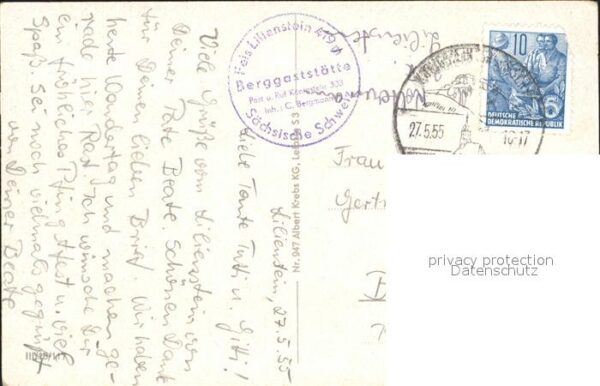 Lilienstein, 27.5.55
Liebe Tante Tutti u. Gitti!
Viele Grüße vom Lilienstein von
Deiner Pate Beate. Schönen Dank
für Deinen lieben Brief. Wir haben
heute Wandertag und machen ge-
rade hier Rast. Ich wünsche Dir
ein fröhliches Pfingstfest u. viel
Spaß. Sei noch vielmals gegrüßt
von Deiner Beate
Fels Lilienstein 419 m
Berggaststätte
Post u. Ruf Königstein 333
Inh.: C. Bergmann
Sächsische Schweiz
Nr. 947 Albert Krebs KG, Leipzig S3
Lilienstein
10
DEUTSCHE
DEMOKRATISCHE REPUBLIK
27.5.55
16-17
Frau
Gertr
privacy protection
Datenschutz